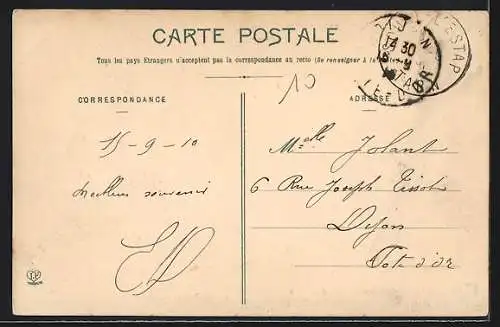 CARTE POSTALE
Tous les pays Etrangers n'acceptent pas la correspondance au recto (Se renseigner à la Poste)
10
CORRESPONDANCE
ADRESSE
15-9-10
meilleur souvenir
ED
Melle Jolant
6 Rue Joseph Tissot
Dijon
Cote d'or